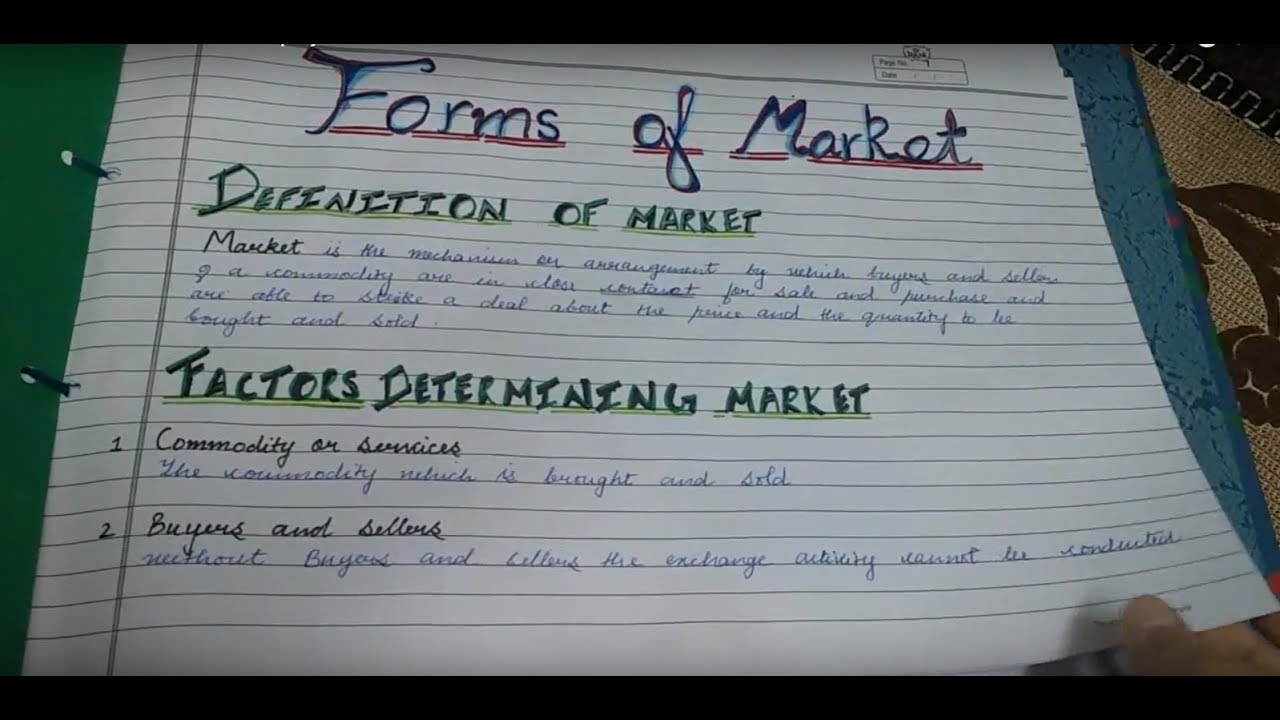 Page No. 7
Date
Forms of Market
DEFINITION OF MARKET
Market is the mechanism or arrangement by which buyers and sellers
of a commodity are in close contact for sale and purchase and
are able to strike a deal about the price and the quantity to be
bought and sold.
FACTORS DETERMINING MARKET
1 Commodity or services
The commodity which is brought and sold
2 Buyers and sellers
without Buyers and sellers the exchange activity cannot be conducted